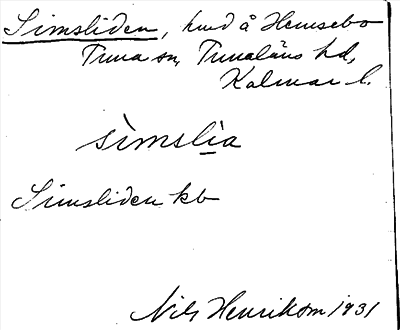 Simsliden, hmd å Hemsebo
Tuna sn, Tunaläns hd,
Kalmar l.
sìmslìa
Simsliden kb
Nils Henrikson 1931